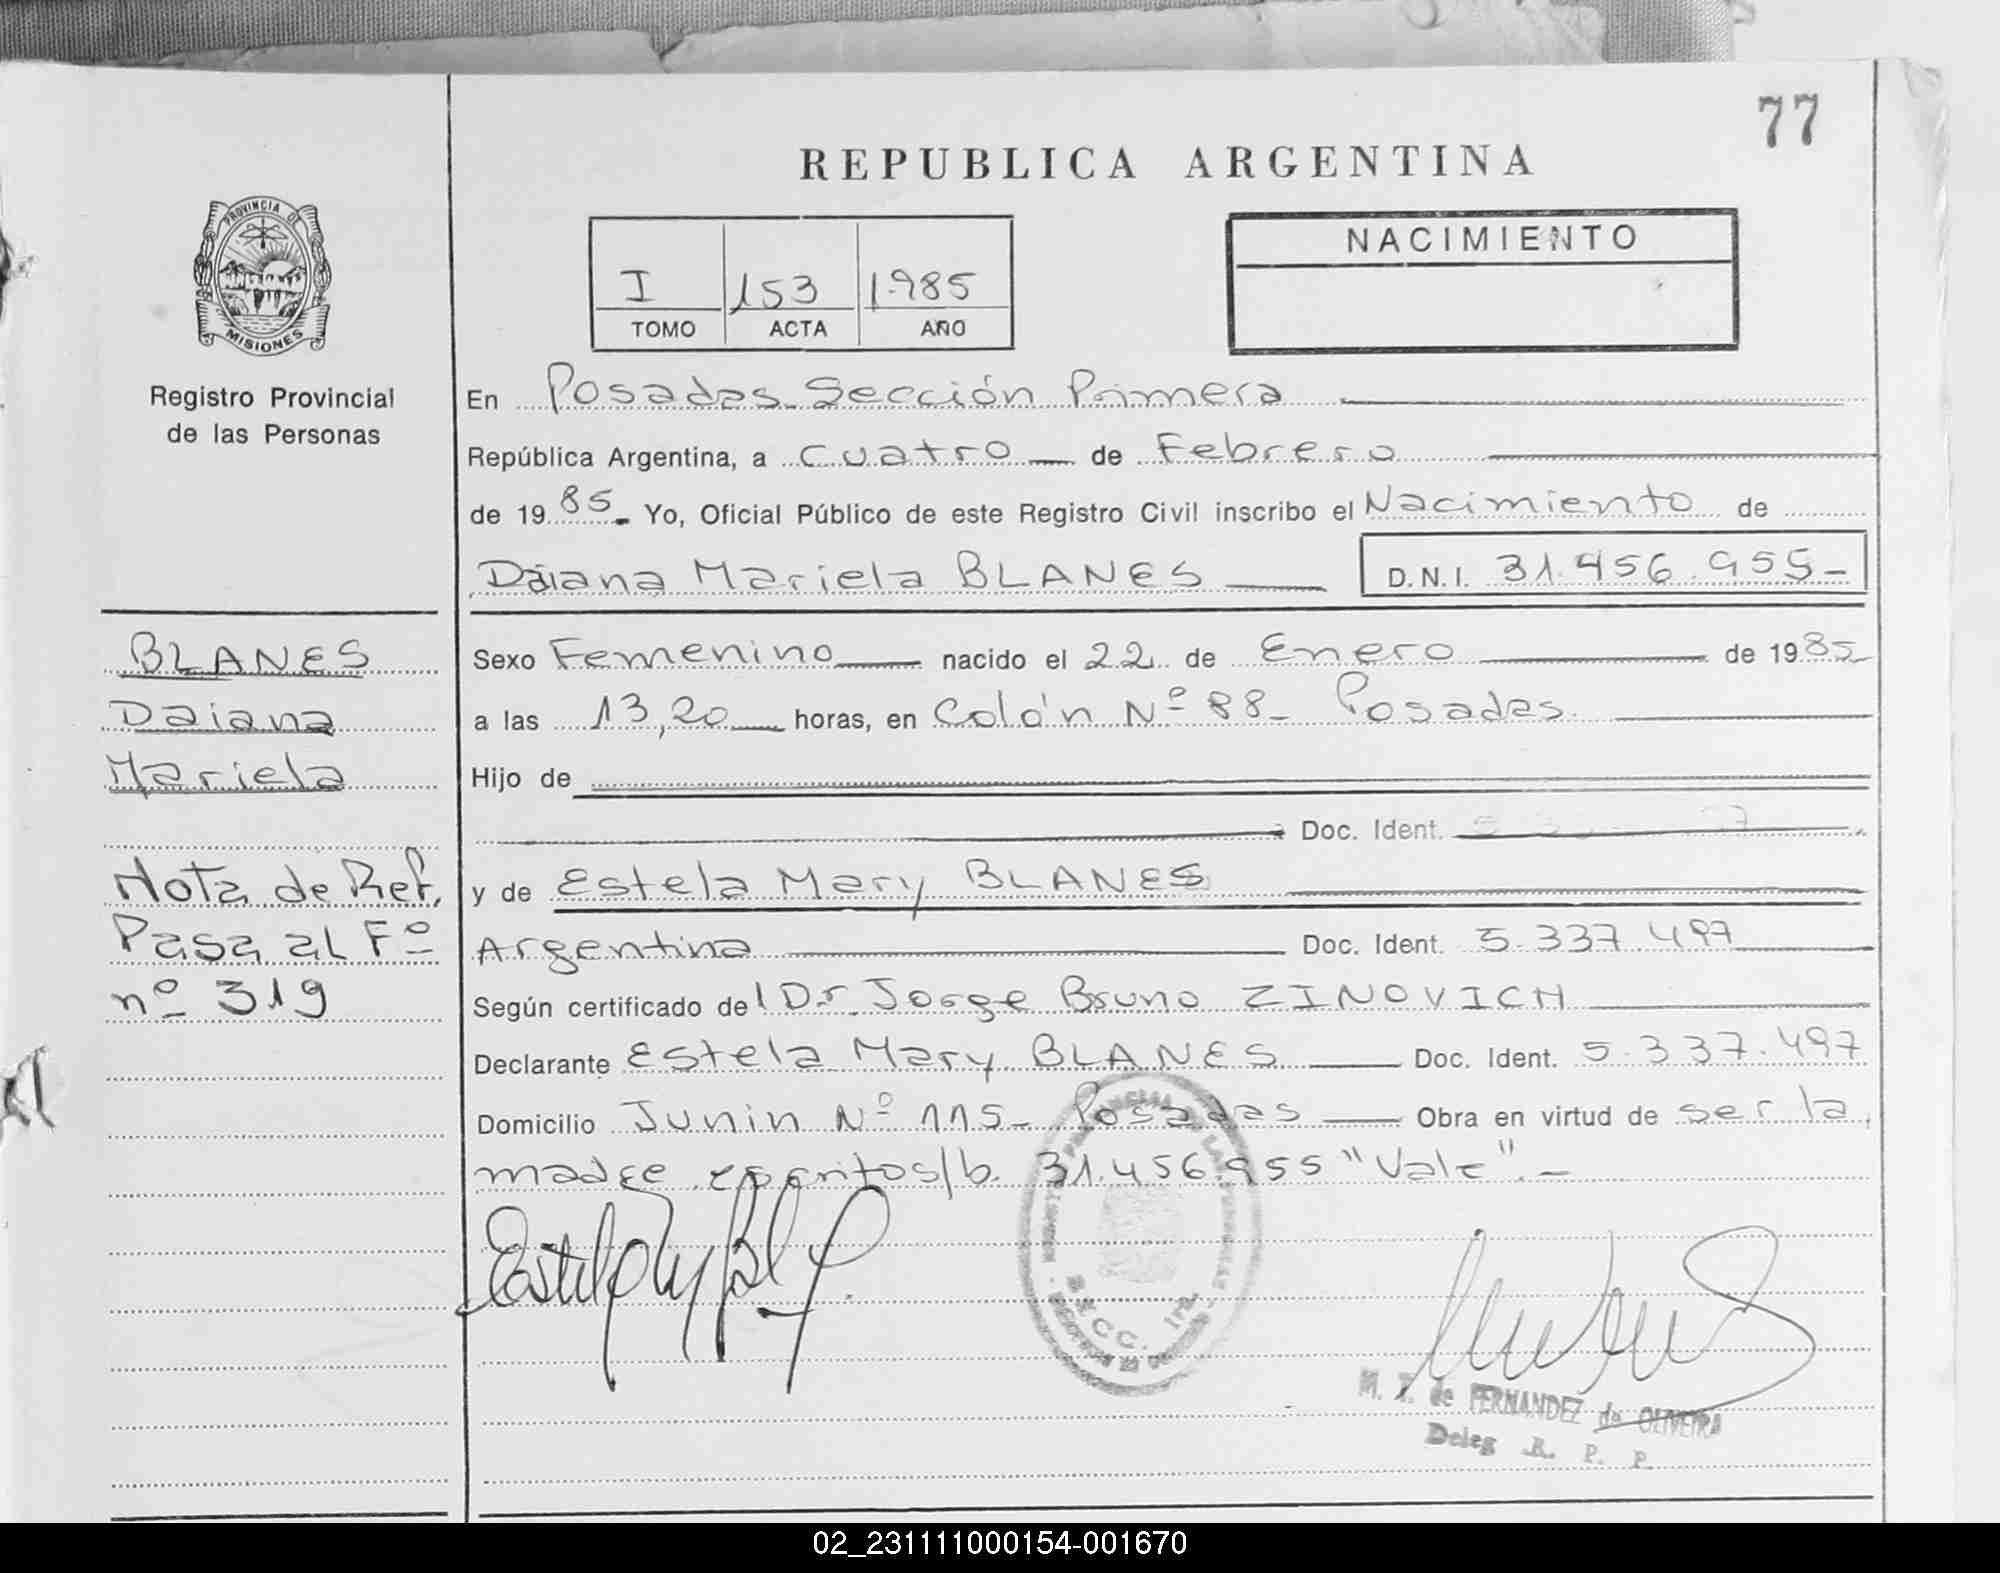 77
REPUBLICA ARGENTINA
PROVINCIA DE
MISIONES
Registro Provincial
de las Personas
I 153 1.985
TOMO ACTA AÑO
NACIMIENTO
En Posadas Sección Primera
República Argentina, a cuatro de Febrero
de 1985 Yo, Oficial Público de este Registro Civil inscribo el Nacimiento de
Daiana Mariela BLANES D.N.I. 31.456.955-
BLANES
Daiana
Mariela
Nota de Ref.
Pasa al Fº
nº 319
Sexo Femenino nacido el 22 de Enero de 1985
a las 13,20 horas, en Colón Nº 88- Posadas
Hijo de
Doc. Ident.
y de Estela Mary BLANES
Argentina Doc. Ident. 5.337.497
Según certificado del Dr. Jorge Bruno ZINOVICH
Declarante Estela Mary BLANES Doc. Ident. 5.337.497
Domicilio Junin Nº 115- Posadas Obra en virtud de ser la
madre 31.456.955 "Vale".-
SECC. 1ra.
M. de FERNANDEZ de OLIVEIRA
Deleg R. P. P.
02_231111000154-001670